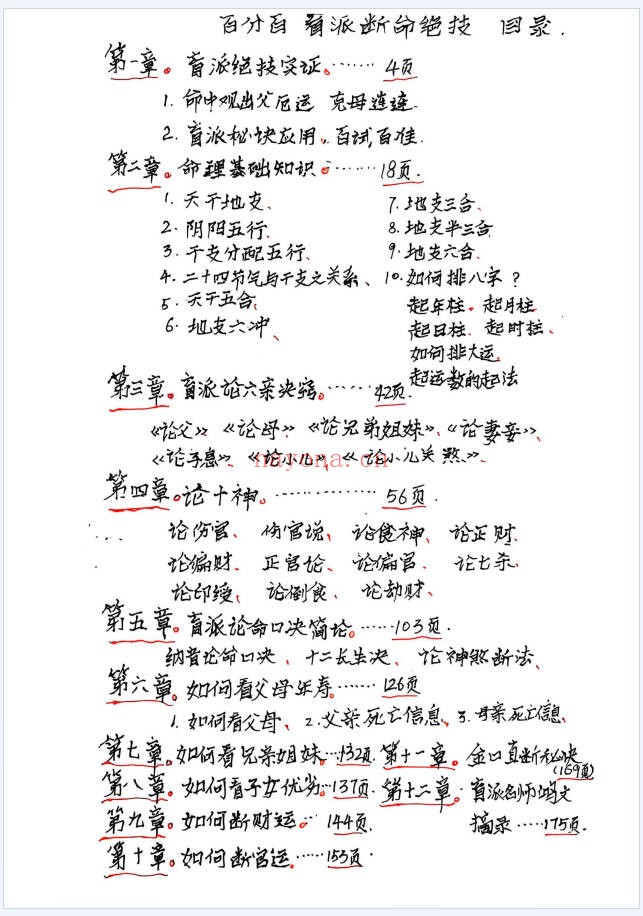 百分百 盲派断命绝技 目录.
第一章。盲派绝技实证。……4页
1. 命中观出父厄运 克母连连.
2. 盲派秘诀应用,百试百准.
第二章。命理基础知识。……18页.
1. 天干地支、
2. 阴阳五行、
3. 干支分配五行、
4. 二十四节气与干支之关系、
5. 天干五合、
6. 地支六冲、
7. 地支三合.
8. 地支半三合
9. 地支六合.
10. 如何排八字?
起年柱、起月柱
起日柱、起时柱、
如何排大运、
起运数的起法
第三章。盲派论六亲决窍。……42页.
《论父》、《论母》、《论兄弟姐妹》、《论妻妾》、
《论子息》、《论小儿》、《论小儿关煞》.
nayona.cn
第四章。论十神。…………56页.
论伤官、 伤官说、 论食神、 论正财.
论偏财. 正官论、 论偏官. 论七杀.
论印绶、 论倒食、 论劫财、
第五章。盲派论命口决简论。……103页.
纳音论命口决、十二长生决、论神煞断法、
第六章。如何看父母年寿。……126页
1. 如何看父母、2. 父亲死亡信息、3. 母亲死亡信息、
第七章。如何看兄弟姐妹…132页.
第八章。如何看子女优劣。…137页.
第九章。如何断财运。… 144页.
第十章。如何断官运。……153页.
第十一章。金口直断秘诀
(169页)
第十二章。盲派名师鸿文
摘录……175页.